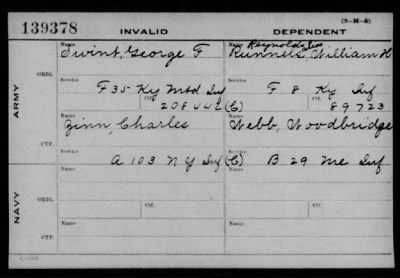 (3-H-5)
139378 INVALID DEPENDENT
Name Name Reynolds
Swint, George F Runnels, William H
ORIG.
Service Service
F 35 Ky Mtd Inf F 8 Ky Inf
Ctf. Ctf.
208442 (C) 89723
ARMY
Name Name
Zinn, Charles Webb, Woodbridge
CTF.
Service Service
A 103 N Y Inf (C) B 29 Me Inf
Name Name
ORIG.
Ctf. Ctf.
NAVY
Name Name
CTF.